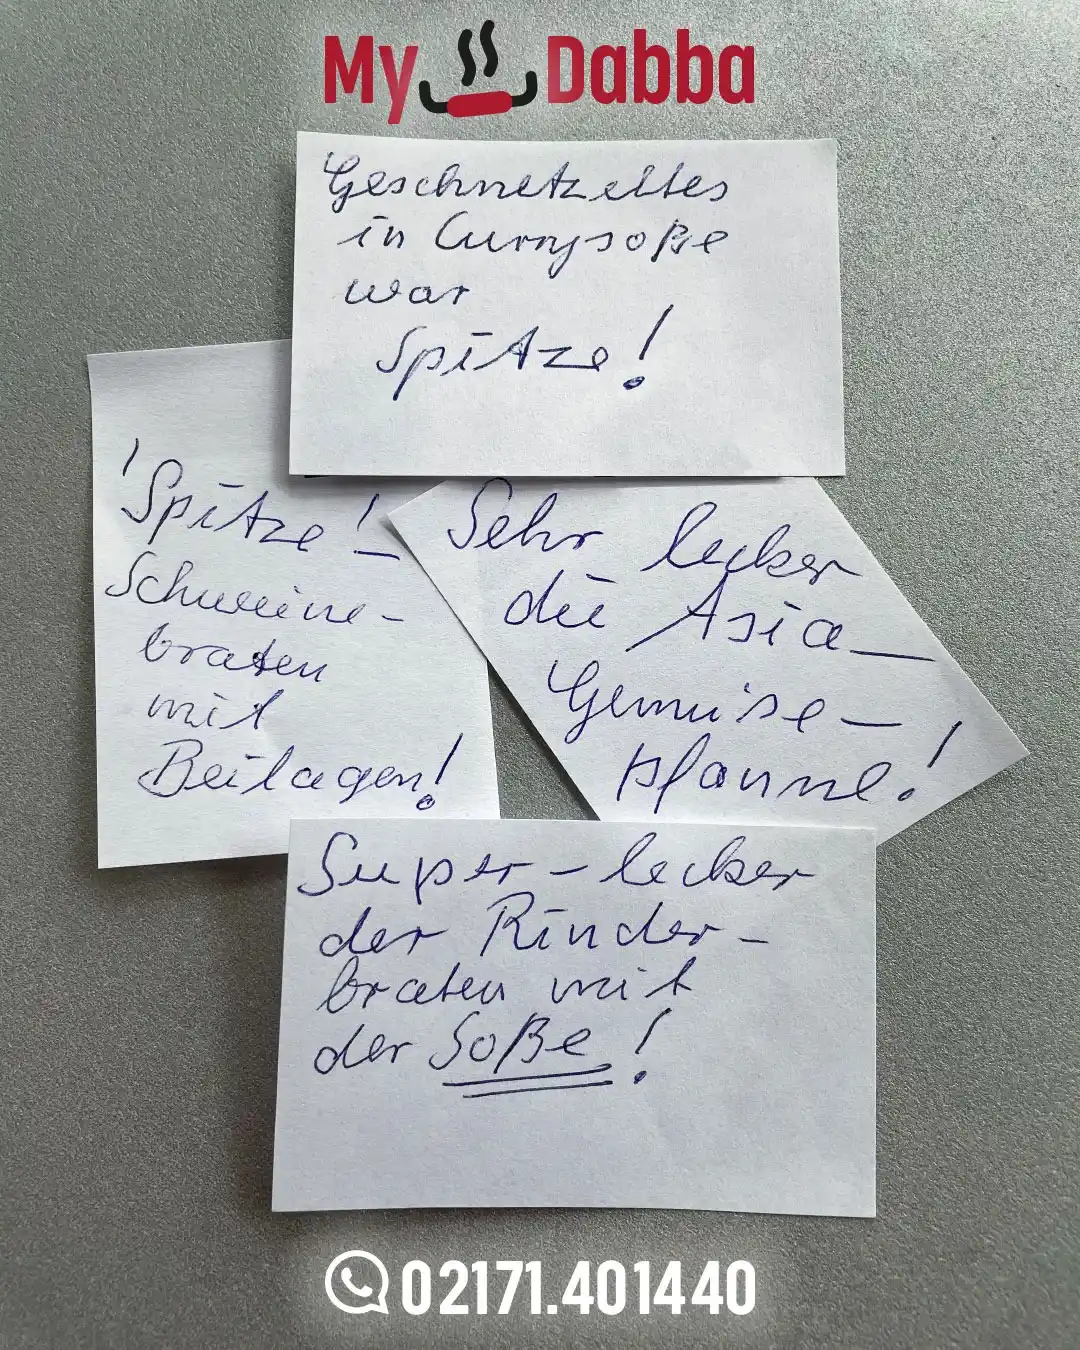 My Dabba
Geschnetzeltes
in Currysoße
war
Spitze!
Spitze! –
Schweine-
braten
mit
Beilagen!
Sehr lecker
die Asia –
Gemüse –
pfanne!
Super – lecker
der Rinder-
braten mit
der Soße!
02171.401440